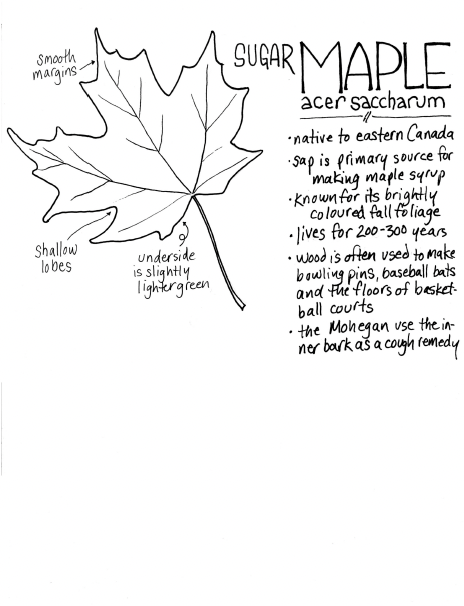 smooth
margins
SUGAR MAPLE
acer saccharum
• native to eastern Canada
• sap is primary source for
making maple syrup
• known for its brightly
coloured fall foliage
• lives for 200-300 years
• wood is often used to make
bowling pins, baseball bats
and the floors of basket-
ball courts
• the Mohegan use the in-
ner bark as a cough remedy
shallow
lobes
underside
is slightly
lighter green